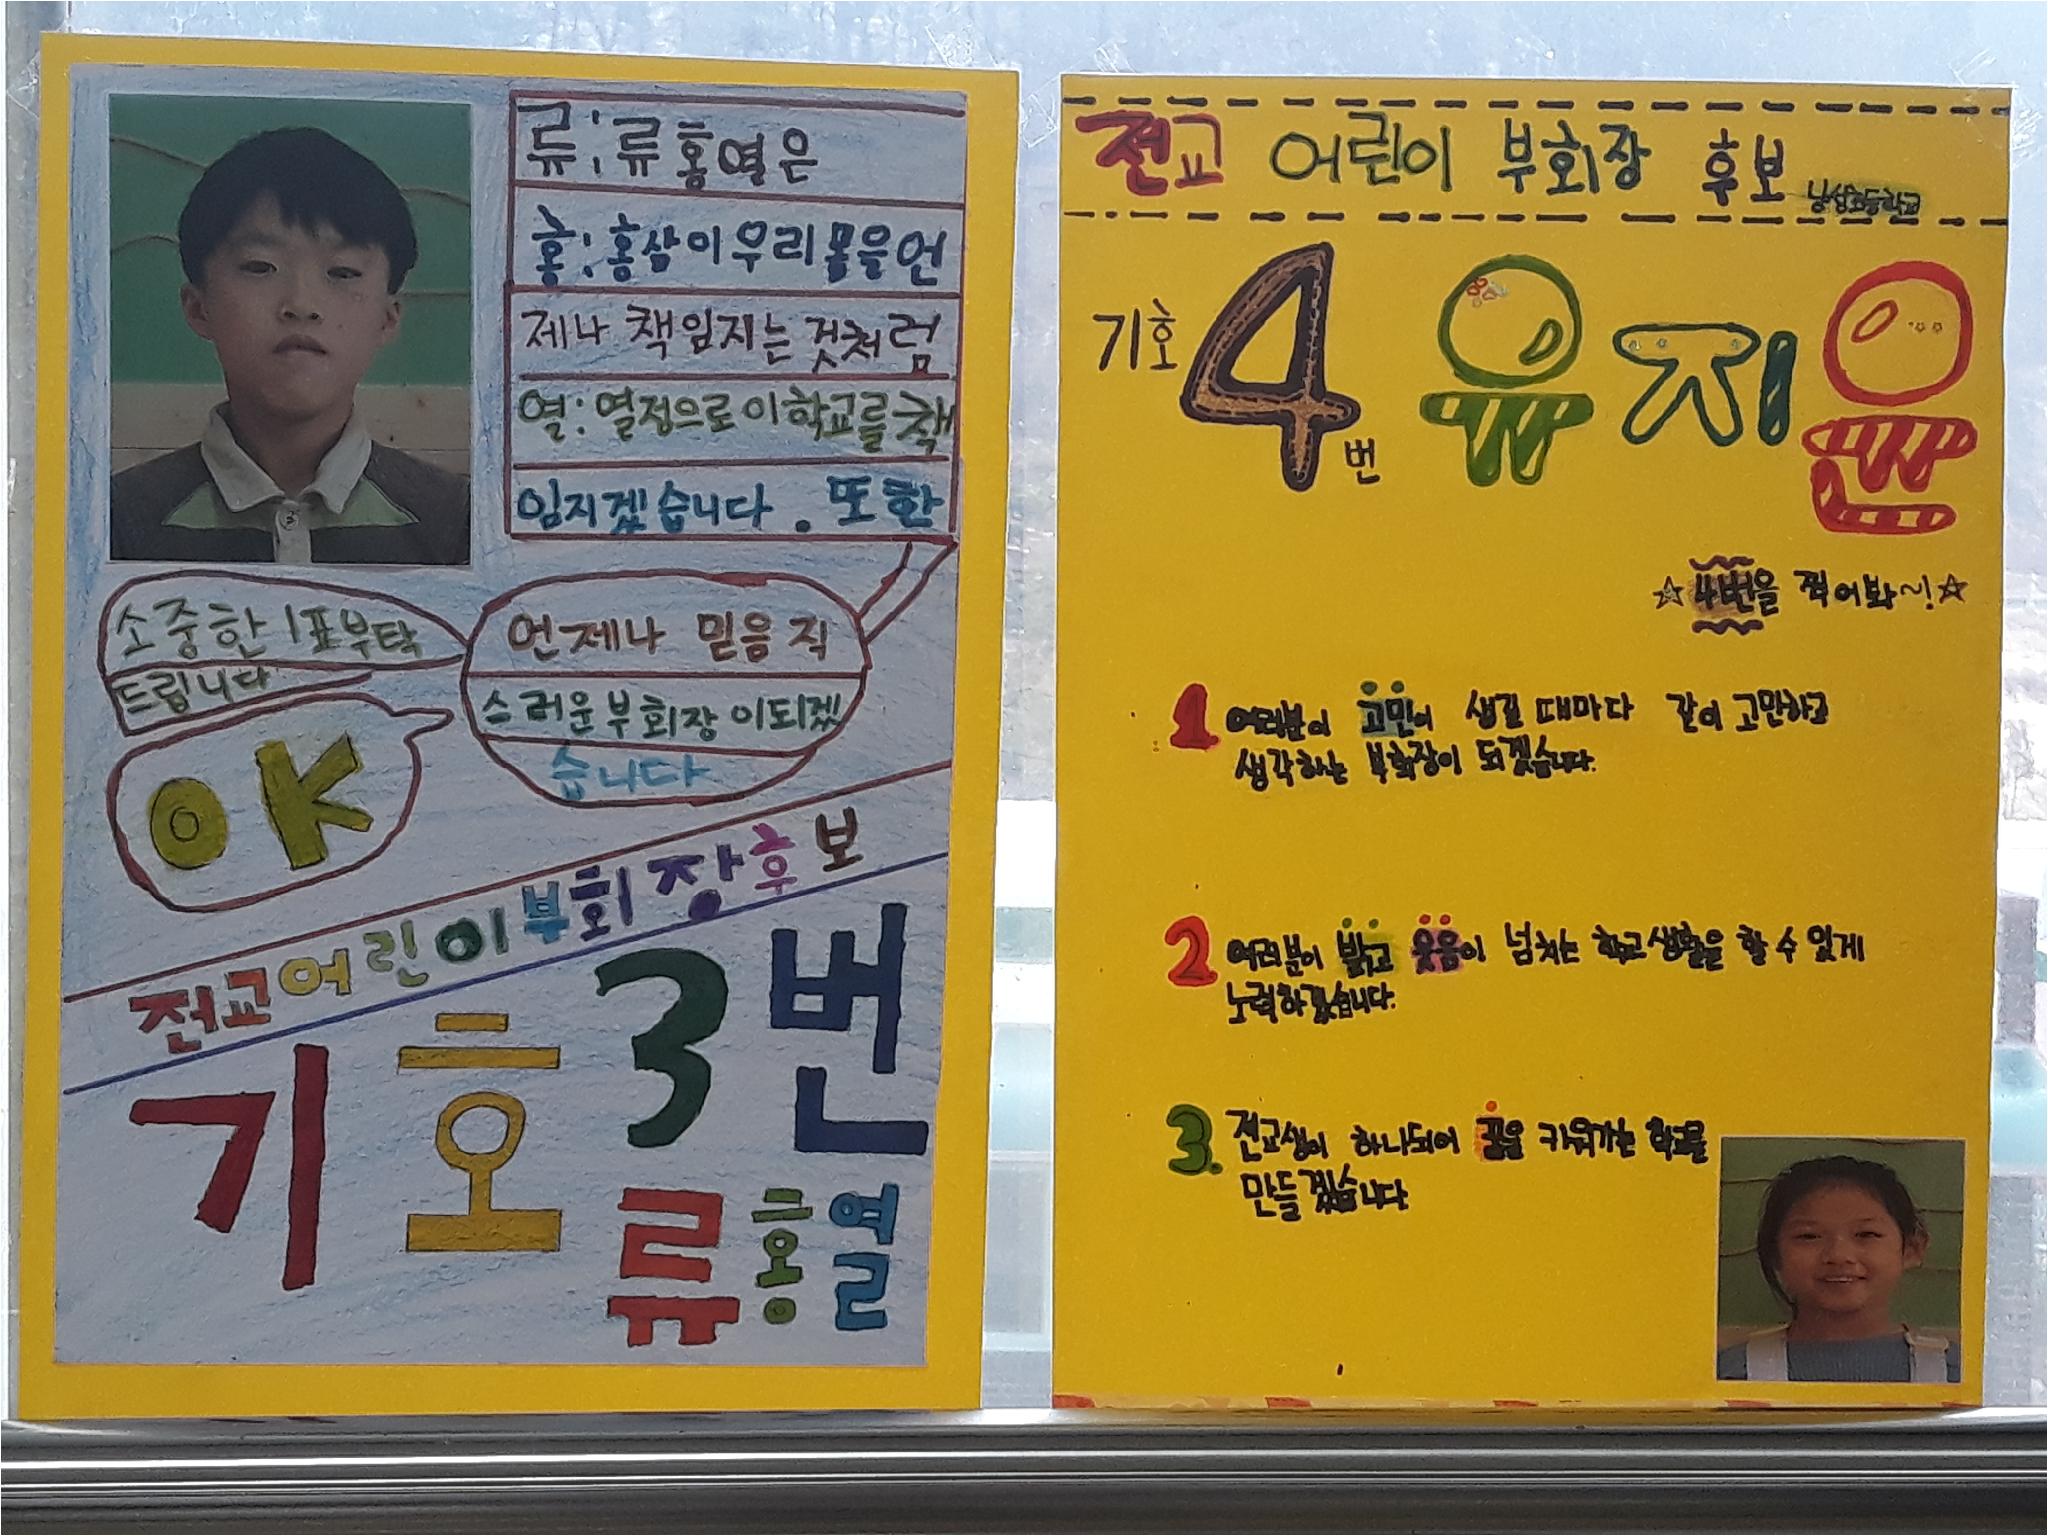 류: 류홍열은
홍: 홍삼이 우리 몸을 언
제나 책임지는 것처럼
열: 열정으로 이 학교를 책
임지겠습니다. 또한
언제나 믿음직
스러운 부회장이되겠
습니다
소중한 1표부탁
드립니다
OK
전교어린이부회장후보
기호 3번
류홍열
전교 어린이 부회장 후보
기호 4번 유지윤
☆4번을 찍어봐~!☆
1 여러분이 고민이 생길 때마다 같이 고민하고
생각하는 부회장이 되겠습니다.
2 여러분이 밝고 웃음이 넘치는 학교생활을 할 수 있게
노력하겠습니다.
3. 전교생이 하나되어 꿈을 키워가는 학교를
만들겠습니다